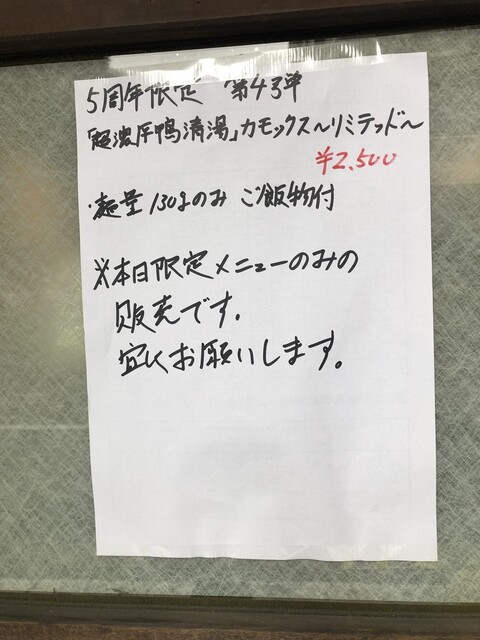 5周年限定 第43弾
「超濃厚鴨清湯」カモックス〜リミテッド〜
¥2,500
・麺量130gのみ ご飯物付
※本日限定メニューのみの
販売です。
宜しくお願いします。